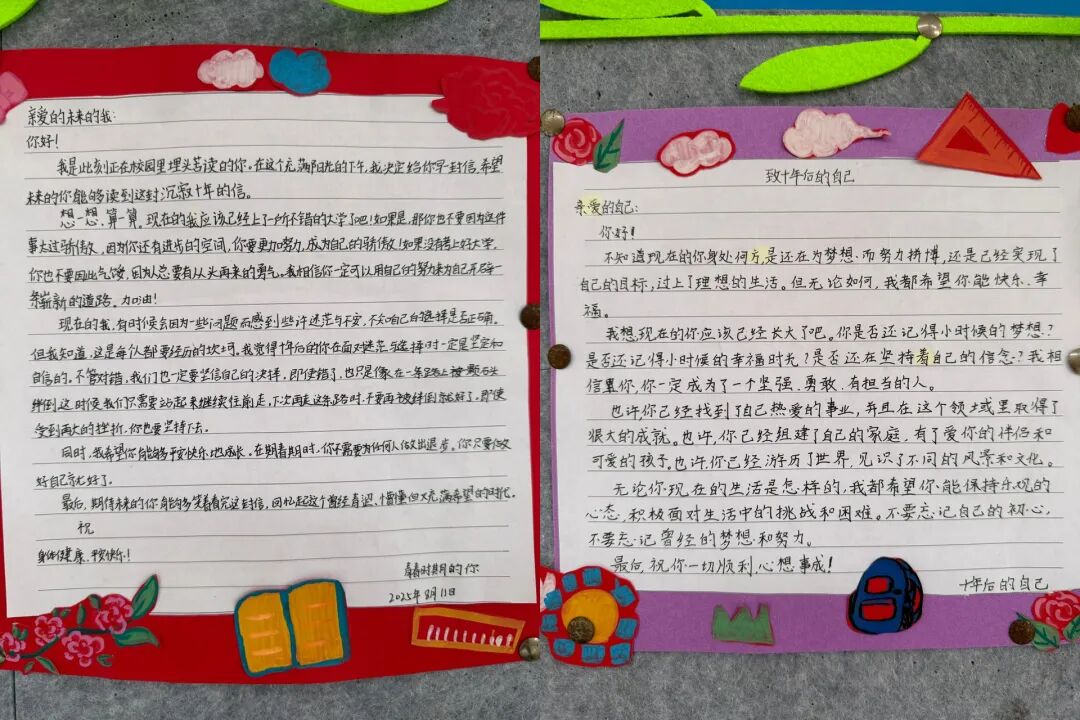 亲爱的未来的我:
你好!
我是此刻正在校园里埋头苦读的你。在这个充满阳光的下午,我决定给你写一封信,希望
未来的你能够读到这封沉寂十年的信。
想一想,算一算。现在的我应该已经上了一所不错的大学了吧!如果是,那你也不要因为这件
事太过骄傲,因为你还有进步的空间,你要更加努力,成为自己的骄傲!如果没有考上好大学,
你也不要因此气馁,因为总要有从头再来的勇气。我相信你一定可以用自己的努力来为自己开启一
条崭新的道路。加油!
现在的我,有时候会因为一些问题而感到些许迷茫与不安,不知自己的选择是否正确。
但我知道,这是每个人都要经历的坎坷。我觉得十年后的你在面对迷茫与选择时一定是坚定和
自信的。不管对错,我们也一定要坚信自己的决择,即使错了,也只是像在一条路上被一颗石头
绊倒,这时候我们只需要站起来继续往前走,下次再走这条路时,不要再被绊倒就好了。即使
受到再大的挫折,你也要坚持下去。
同时,我希望你能够平安快乐地成长。在期春期时,你不需要为任何人做出退步。你只要做
好自己就好了。
最后,期待未来的你能够笑着看完这封信,回忆起这个曾经青涩、懵懂但又充满希望的时代。
祝
身体健康、平安快乐!
青春时期的你
2025年8月11日
致十年后的自己
亲爱的自己:
你好!
不知道现在的你身处何方,是还在为梦想而努力拼博,还是已经实现了
自己的目标,过上了理想的生活。但无论如何,我都希望你能快乐、幸
福。
我想,现在的你应该已经长大了吧。你是否还记得小时候的梦想?
是否还记得小时候的幸福时光?是否还在坚持着自己的信念?我相
信,你一定成为了一个坚强、勇敢、有担当的人。
也许你已经找到了自己热爱的事业,并且在这个领域里取得了
很大的成就。也许,你已经组建了自己的家庭,有了爱你的伴侣和
可爱的孩子。也许你已经游历了世界,见识了不同的风景和文化。
无论你现在的生活是怎样的,我都希望你能保持乐观的
心态,积极面对生活中的挑战和困难。不要忘记自己的初心,
不要忘记曾经的梦想和努力。
最后,祝你一切顺利,心想事成!
十年后的自己